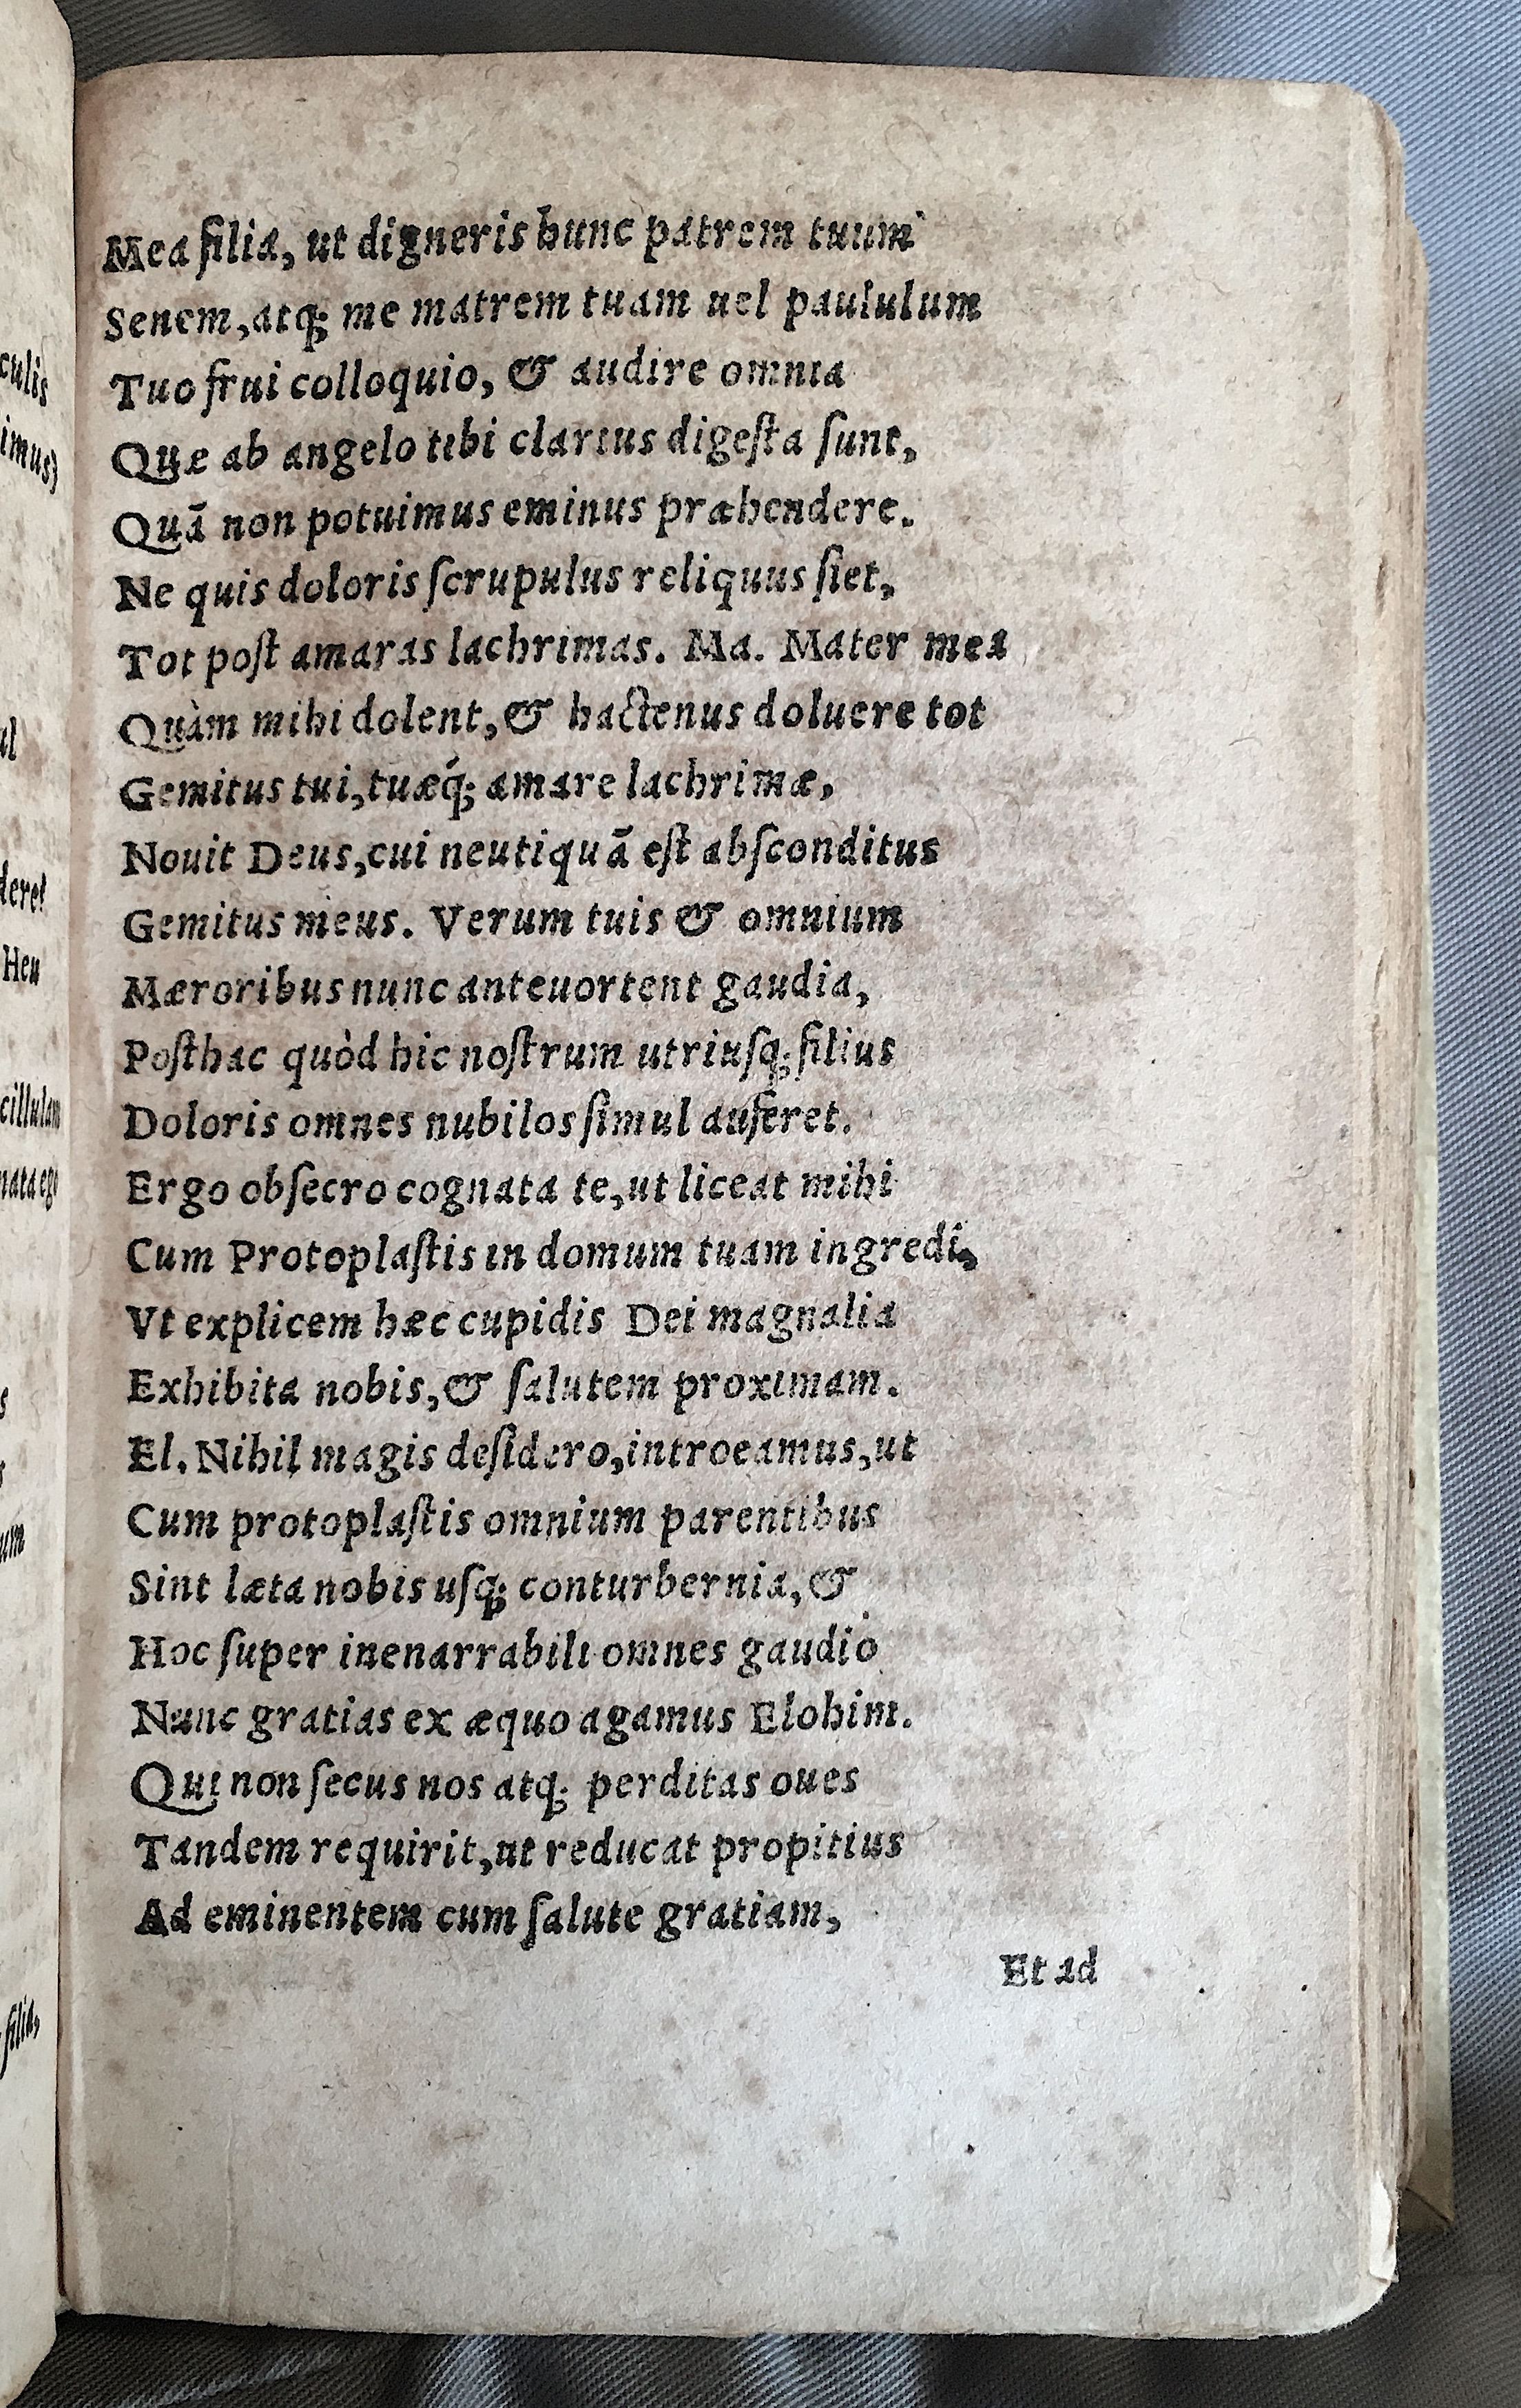 Mea filia, ut digneris hunc patrem tuum
Senem, atq; me matrem tuam uel paululum
Tuo frui colloquio, & audire omnia
Quæ ab angelo tibi clarius digeſta ſunt,
Quã non potuimus eminus præhendere.
Ne quis doloris ſcrupulus reliquus ſiet,
Tot poſt amaras lachrimas. Ma. Mater mea
Quàm mihi dolent, & hactenus doluere tot
Gemitus tui, tuæq́; amare lachrimæ,
Nouit Deus, cui neutiquã eſt abſconditus
Gemitus meus. Verum tuis & omnium
Mæroribus nunc anteuortent gaudia,
Poſthac quòd hic noſtrum utriuſq; filius
Doloris omnes nubilos ſimul auferet.
Ergo obſecro cognata te, ut liceat mihi
Cum Protoplaſtis in domum tuam ingredi,
Vt explicem hæc cupidis Dei magnalia
Exhibita nobis, & ſalutem proximam.
El. Nihil magis deſidero, introeamus, ut
Cum protoplaſtis omnium parentibus
Sint læta nobis uſq; conturbernia, &
Hoc ſuper inenarrabili omnes gaudio
Nunc gratias ex æquo agamus Elohim.
Qui non ſecus nos atq; perditas oues
Tandem requirit, ut reducat propitius
Ad eminentem cum ſalute gratiam,
Et ad
culis
imus)
ul
deret
Heu
cillulam
nata ego
um
filia,